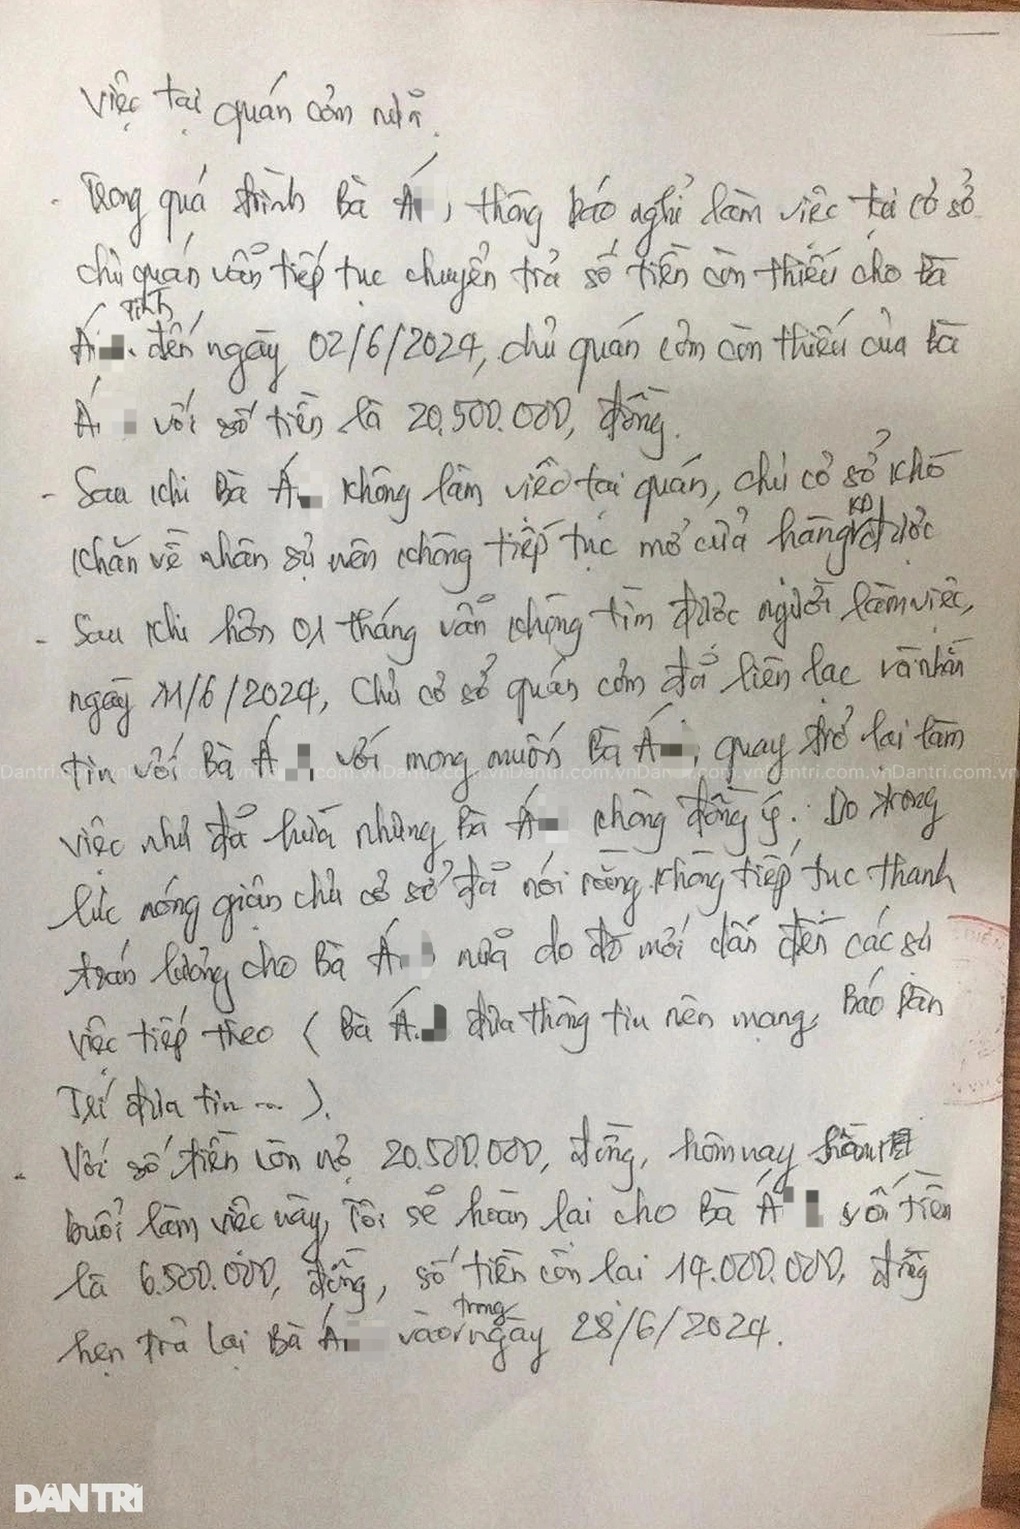 việc tại quán cơm nữa.
- Trong quá trình Bà Á, thông báo nghỉ làm việc tại cơ sở
chủ quán vẫn tiếp tục chuyển trả số tiền còn thiếu cho bà
Á. tính đến ngày 02/6/2024, chủ quán cơm còn thiếu của bà
Á với số tiền là 20.500.000, đồng.
- Sau khi Bà Á không làm việc tại quán, chủ cơ sở khó
khăn về nhân sự nên không tiếp tục mở cửa hàng KD được
- Sau khi hơn 01 tháng vẫn không tìm được người làm việc,
ngày 11/6/2024, Chủ cơ sở quán cơm đã liên lạc và nhắn
tin với Bà Á, với mong muốn Bà Á, quay trở lại làm
việc như đã hứa nhưng Bà Á không đồng ý. Do trong
lúc nóng giận chủ cơ sở đã nói rằng không tiếp tục thanh
toán lương cho Bà Á nữa do đó mới dẫn đến các sự
việc tiếp theo (Bà Á. đưa thông tin nên mạng, Báo Dân
Trí đưa tin...).
- Với số tiền còn nợ 20.500.000, đồng, hôm nay
buổi làm việc này, Tôi sẽ hoàn lại cho Bà Á số tiền
là 6.500.000, đồng, số tiền còn lại 14.000.000, đồng
hẹn trả lại Bà Á vào trong ngày 28/6/2024.
Dantri.com.vnDantri.com.vnDantri.com.vnDantri.com.vnDantri.com.vnDantri.com.vn
DÂN TRÍ